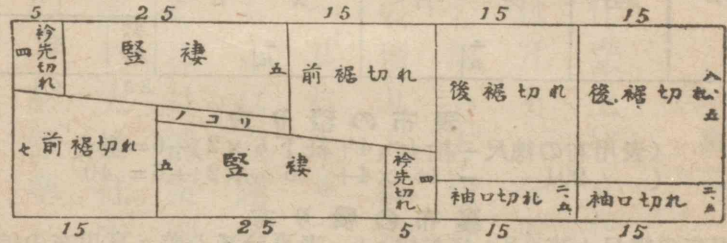 5 25 15 15 15
衿先切れ
四
竪褄
五
前裾切れ
後裾切れ
後裾切れ
八、五
ノコリ
七
前裾切れ
五
竪褄
衿先切れ
四
袖口切れ
二、五
袖口切れ
二、五
15 25 5 15 15